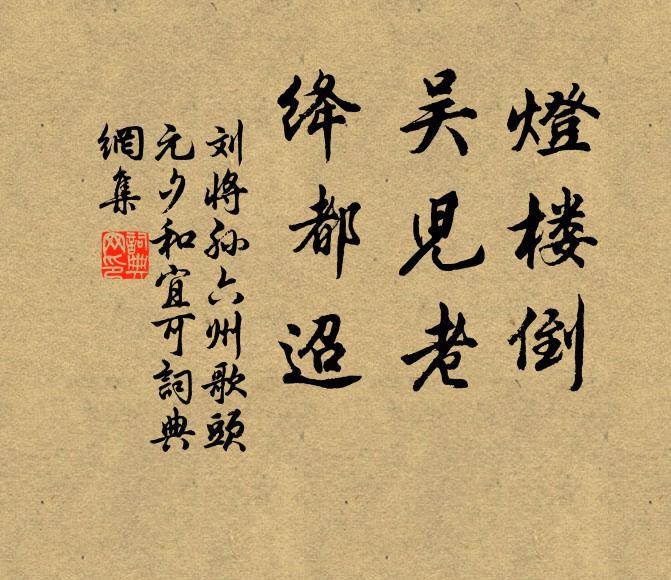 燈楼倒
吴児老
绛都迢
刘将孙六州歌頭
元夕和宜可詞典
網集
詞典
网印